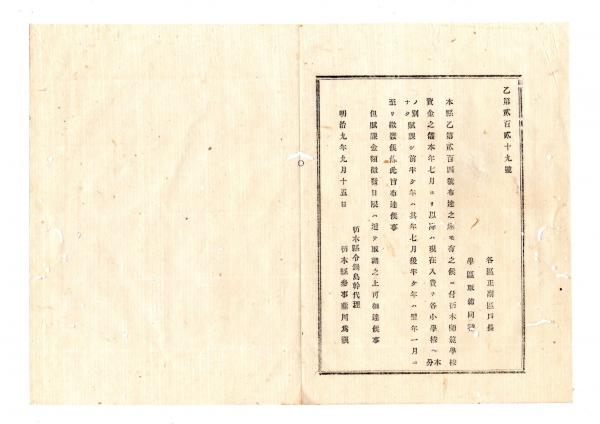 乙第貳百貳十九號
各區正副區戸長
學區取締同
本縣乙第貳百四號布達之儀モ有之候ニ付栃木師範學校
資金之儀本年七月ヨリ以降ハ現在入費ヲ各小學校ヘ分
ノ別賦課シ前半ケ年ハ其年七月後半ケ年ハ翌年一月
至リ徴候此旨布達候事
但賦課金額徴日限ハ追テ取調之上可相達候事
明治九年九月十五日
栃木縣令鍋島幹代理
栃木縣參事藤川爲親